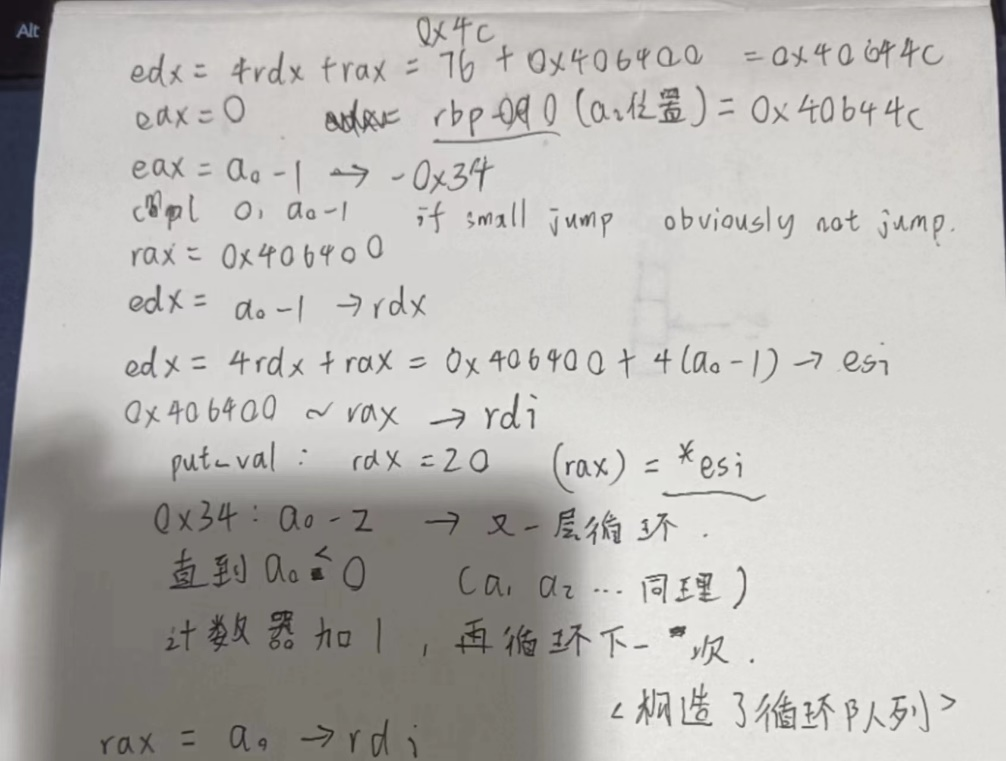 Alt
0x4c
edx = 4rdx + rax = 76 + 0x406400 = 0x40644c
eax = 0 rbp (a₂位置) = 0x40644c
eax = a₀ - 1 → -0x34
cmpl 0, a₀-1 if small jump obviously not jump.
rax = 0x406400
edx = a₀-1 → rdx
edx = 4rdx + rax = 0x406400 + 4(a₀-1) → esi
0x406400 ~ rax → rdi
put_val : rdx = 20 (rax) = *esi
0x34 : a₀-2 → 又一层循环.
直到 a₀ ≤ 0 (a₁ a₂ ... 同理)
计数器加1, 再循环下一次.
<构造了循环队列>
rax = a₉ → rdi